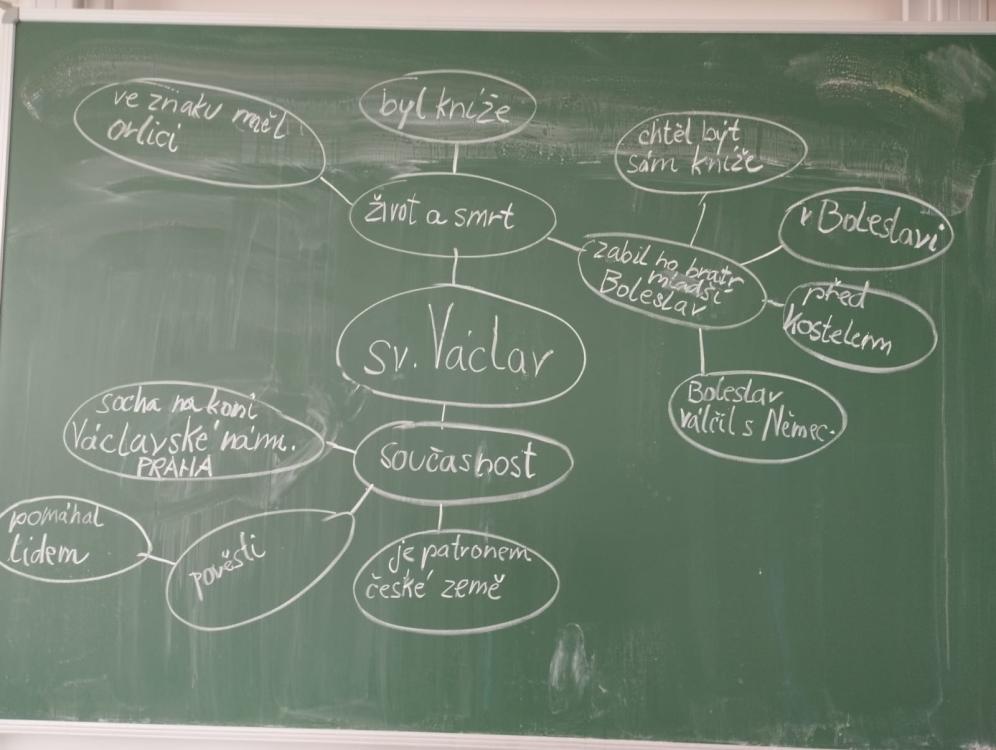 ve znaku měl
orlici
byl kníže
chtěl být
sám kníže
život a smrt
v Boleslavi
zabil ho bratr
mladší
Boleslav
před
kostelem
sv. Václav
Boleslav
válčil s Němec.
socha na koni
Václavské nám.
PRAHA
současnost
pomáhal
lidem
pověsti
je patronem
české země